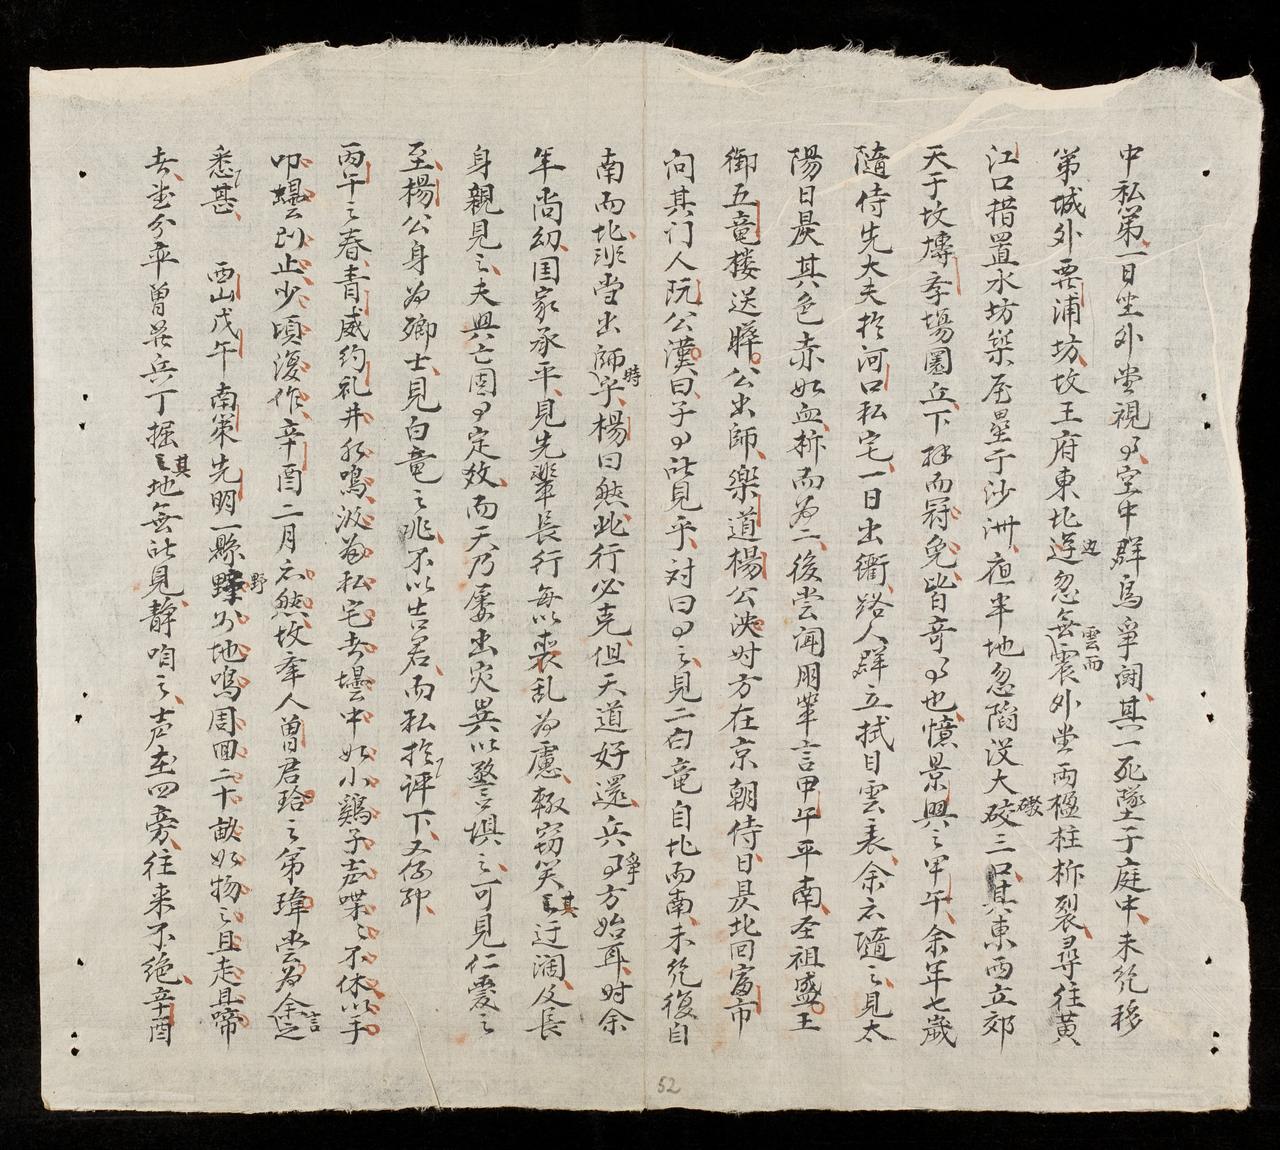 中私第一日坐外堂視事空中群烏爭鬪其一死墜于庭中未幾移
第城外栗浦坊坟王府東北邊边忽無雲而震外堂両楹柱柝裂尋往黃
江口措置水坊築壘于沙洲夜半地忽陷没大砍礟三口其東西立郊
天于坟塼爲圜丘下拜而冠免皆奇事也憶景興之甲午余年七歲
隨侍先大夫扵河口私宅一日出衢路人群立拭目雲表余亦隨之見太
陽日昃其色赤如血柝而爲二後嘗闻朋輩言甲午平南圣祖盛王
御五竜楼送曄公出師樂道楊公泱时方在京朝侍日昃北回富市
问其门人阮公漢曰子事此見乎对曰事之見二白竜自北而南未幾復自
南而北非當出師時字楊曰然此行必克但天道好還兵爭事方始耳时余
年尚幼国家承平見先輩長行每以丧乱爲慮輒窃笑其迂濶及長
身親見之夫興亡固事定效而天乃屡出灾異以警惧之可見仁愛之
至楊公身爲卿士見白竜之兆不以告君而私扵評下又何耶
丙午之春青威約礼井水鳴汲爲私宅去壜中如小鷄子声喋〻不休以手
叩壜則止少頃復作辛酉二月亦然故峯人曾君珆之第瑋嘗爲余言之
悉甚　西山戊午南策先明一縣野外地鳴周囬二十畝如物之且走且啼
者堂分平曾差兵丁掘其地無所見静咱之声在四旁往来不绝辛酉
52